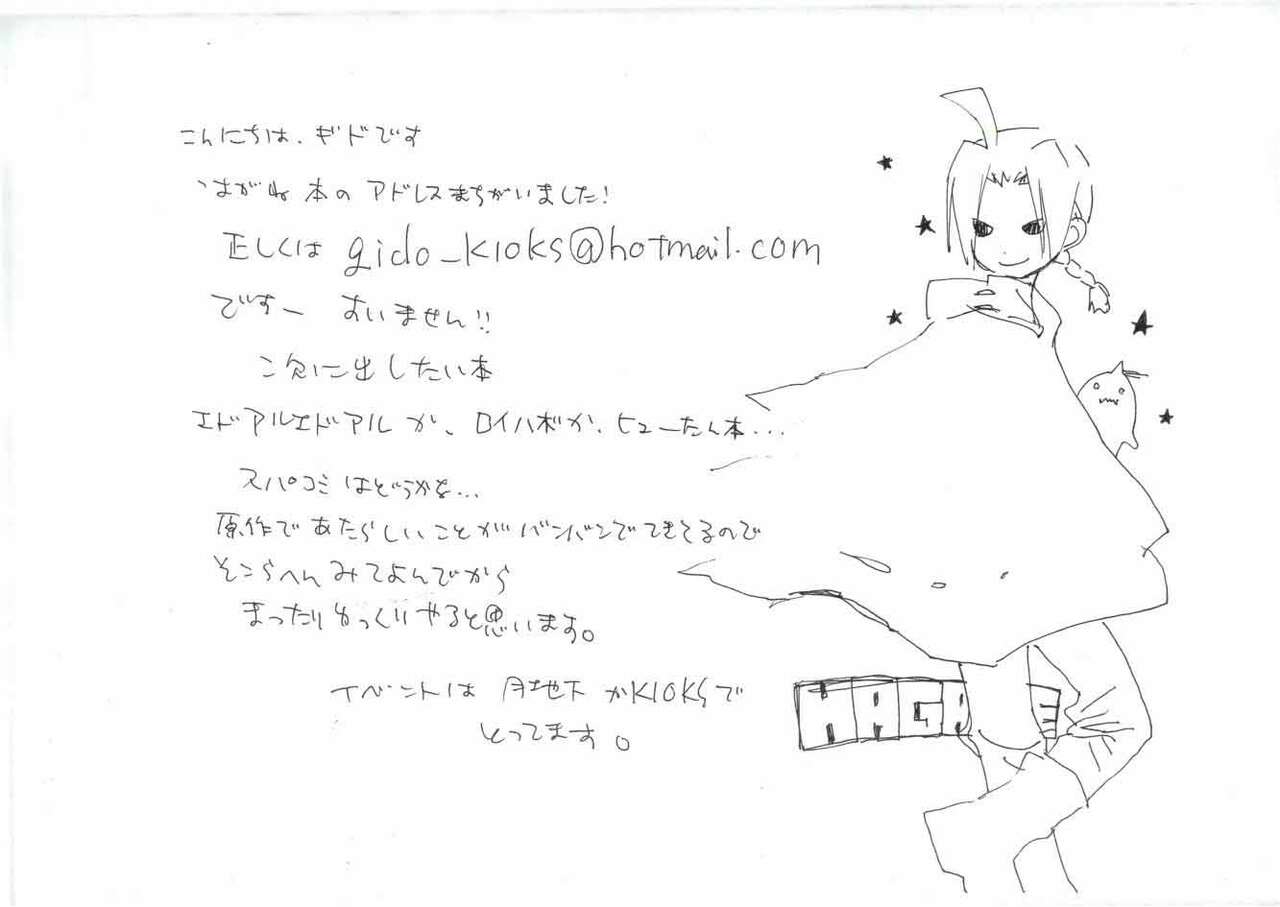 こんにちは、ギドです
はがね本のアドレスまちがいました!
正しくは gido_kioks@hotmail.com
ですー すいません!!
次に出したい本
エドアルエドアルか、ロイハボか、ヒューたん本...
スパコミはどうかな...
原作であたらしいことがバンバンでてきてるので
そこらへんみてよんでから
まったりゆっくりやると思います。
イベントは 月地下かKIOKSで
とってます。
HAGA